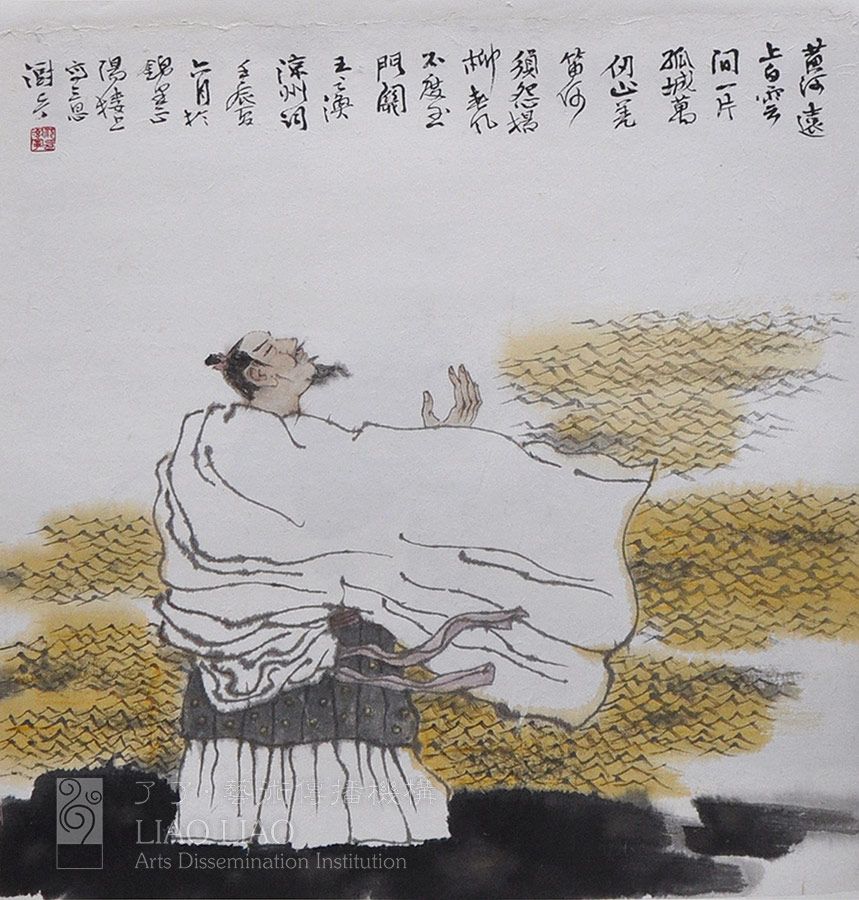 黄河遠
上白雲
間一片
孤城萬
仞山羌
笛何
須怨楊
柳春风
不度玉
門關
王之渙
涼州詞
壬辰
六月於
陽樓上
了了·藝術傳播機構
LIAO LIAO
Arts Dissemination Institution